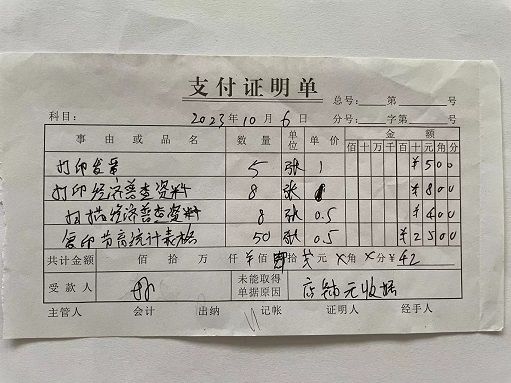 支付证明单
总号: 第 号
科目: 2023年10月6日 分号: 字第 号
事由或品名 数量 单位 单价 金额
佰十万千百十元角分
打印发票 5 张 1 ¥500
打印经济普查资料 8 张 1 ¥800
扫描经济普查资料 8 张 0.5 ¥400
复印节育统计表格 50 张 0.5 ¥2500
共计金额 佰 拾 万 仟 佰 肆拾 贰元 X角 X分 ¥42
受款人 未能取得单据原因 店铺无收据
主管人 会计 出纳 记帐 证明人 经手人